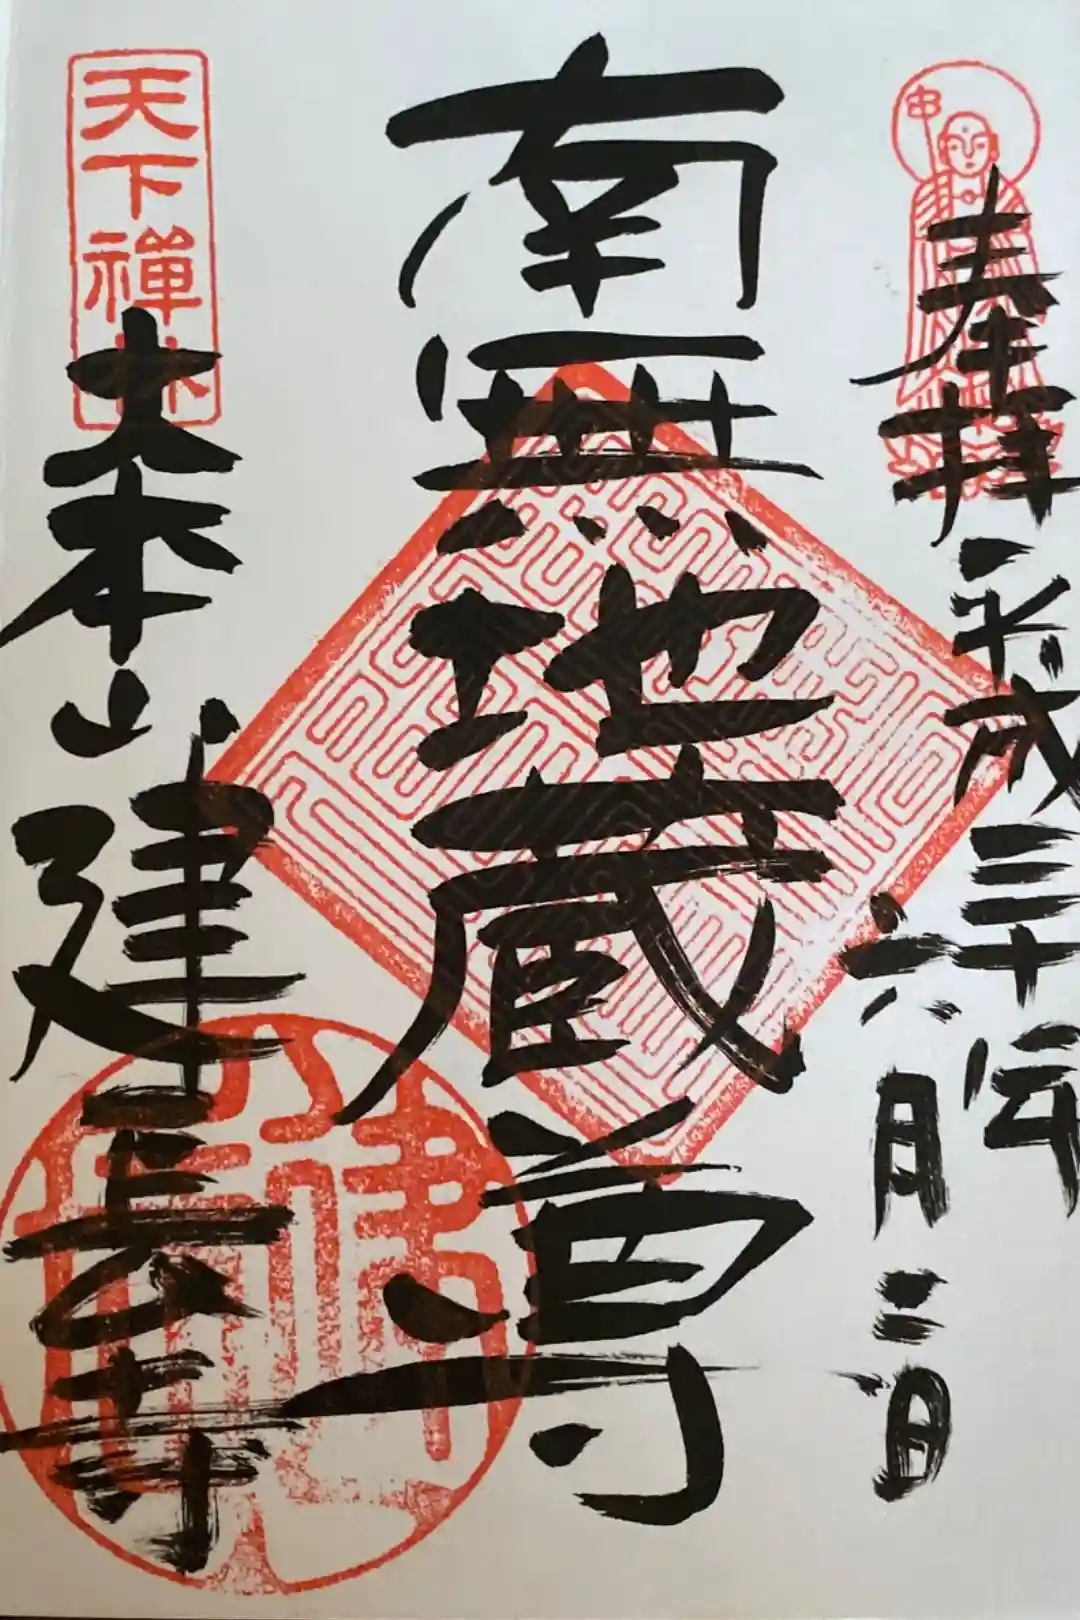 奉拝
平成三十年
六月二日
南無地蔵尊
天下禅林
大本山
建長寺